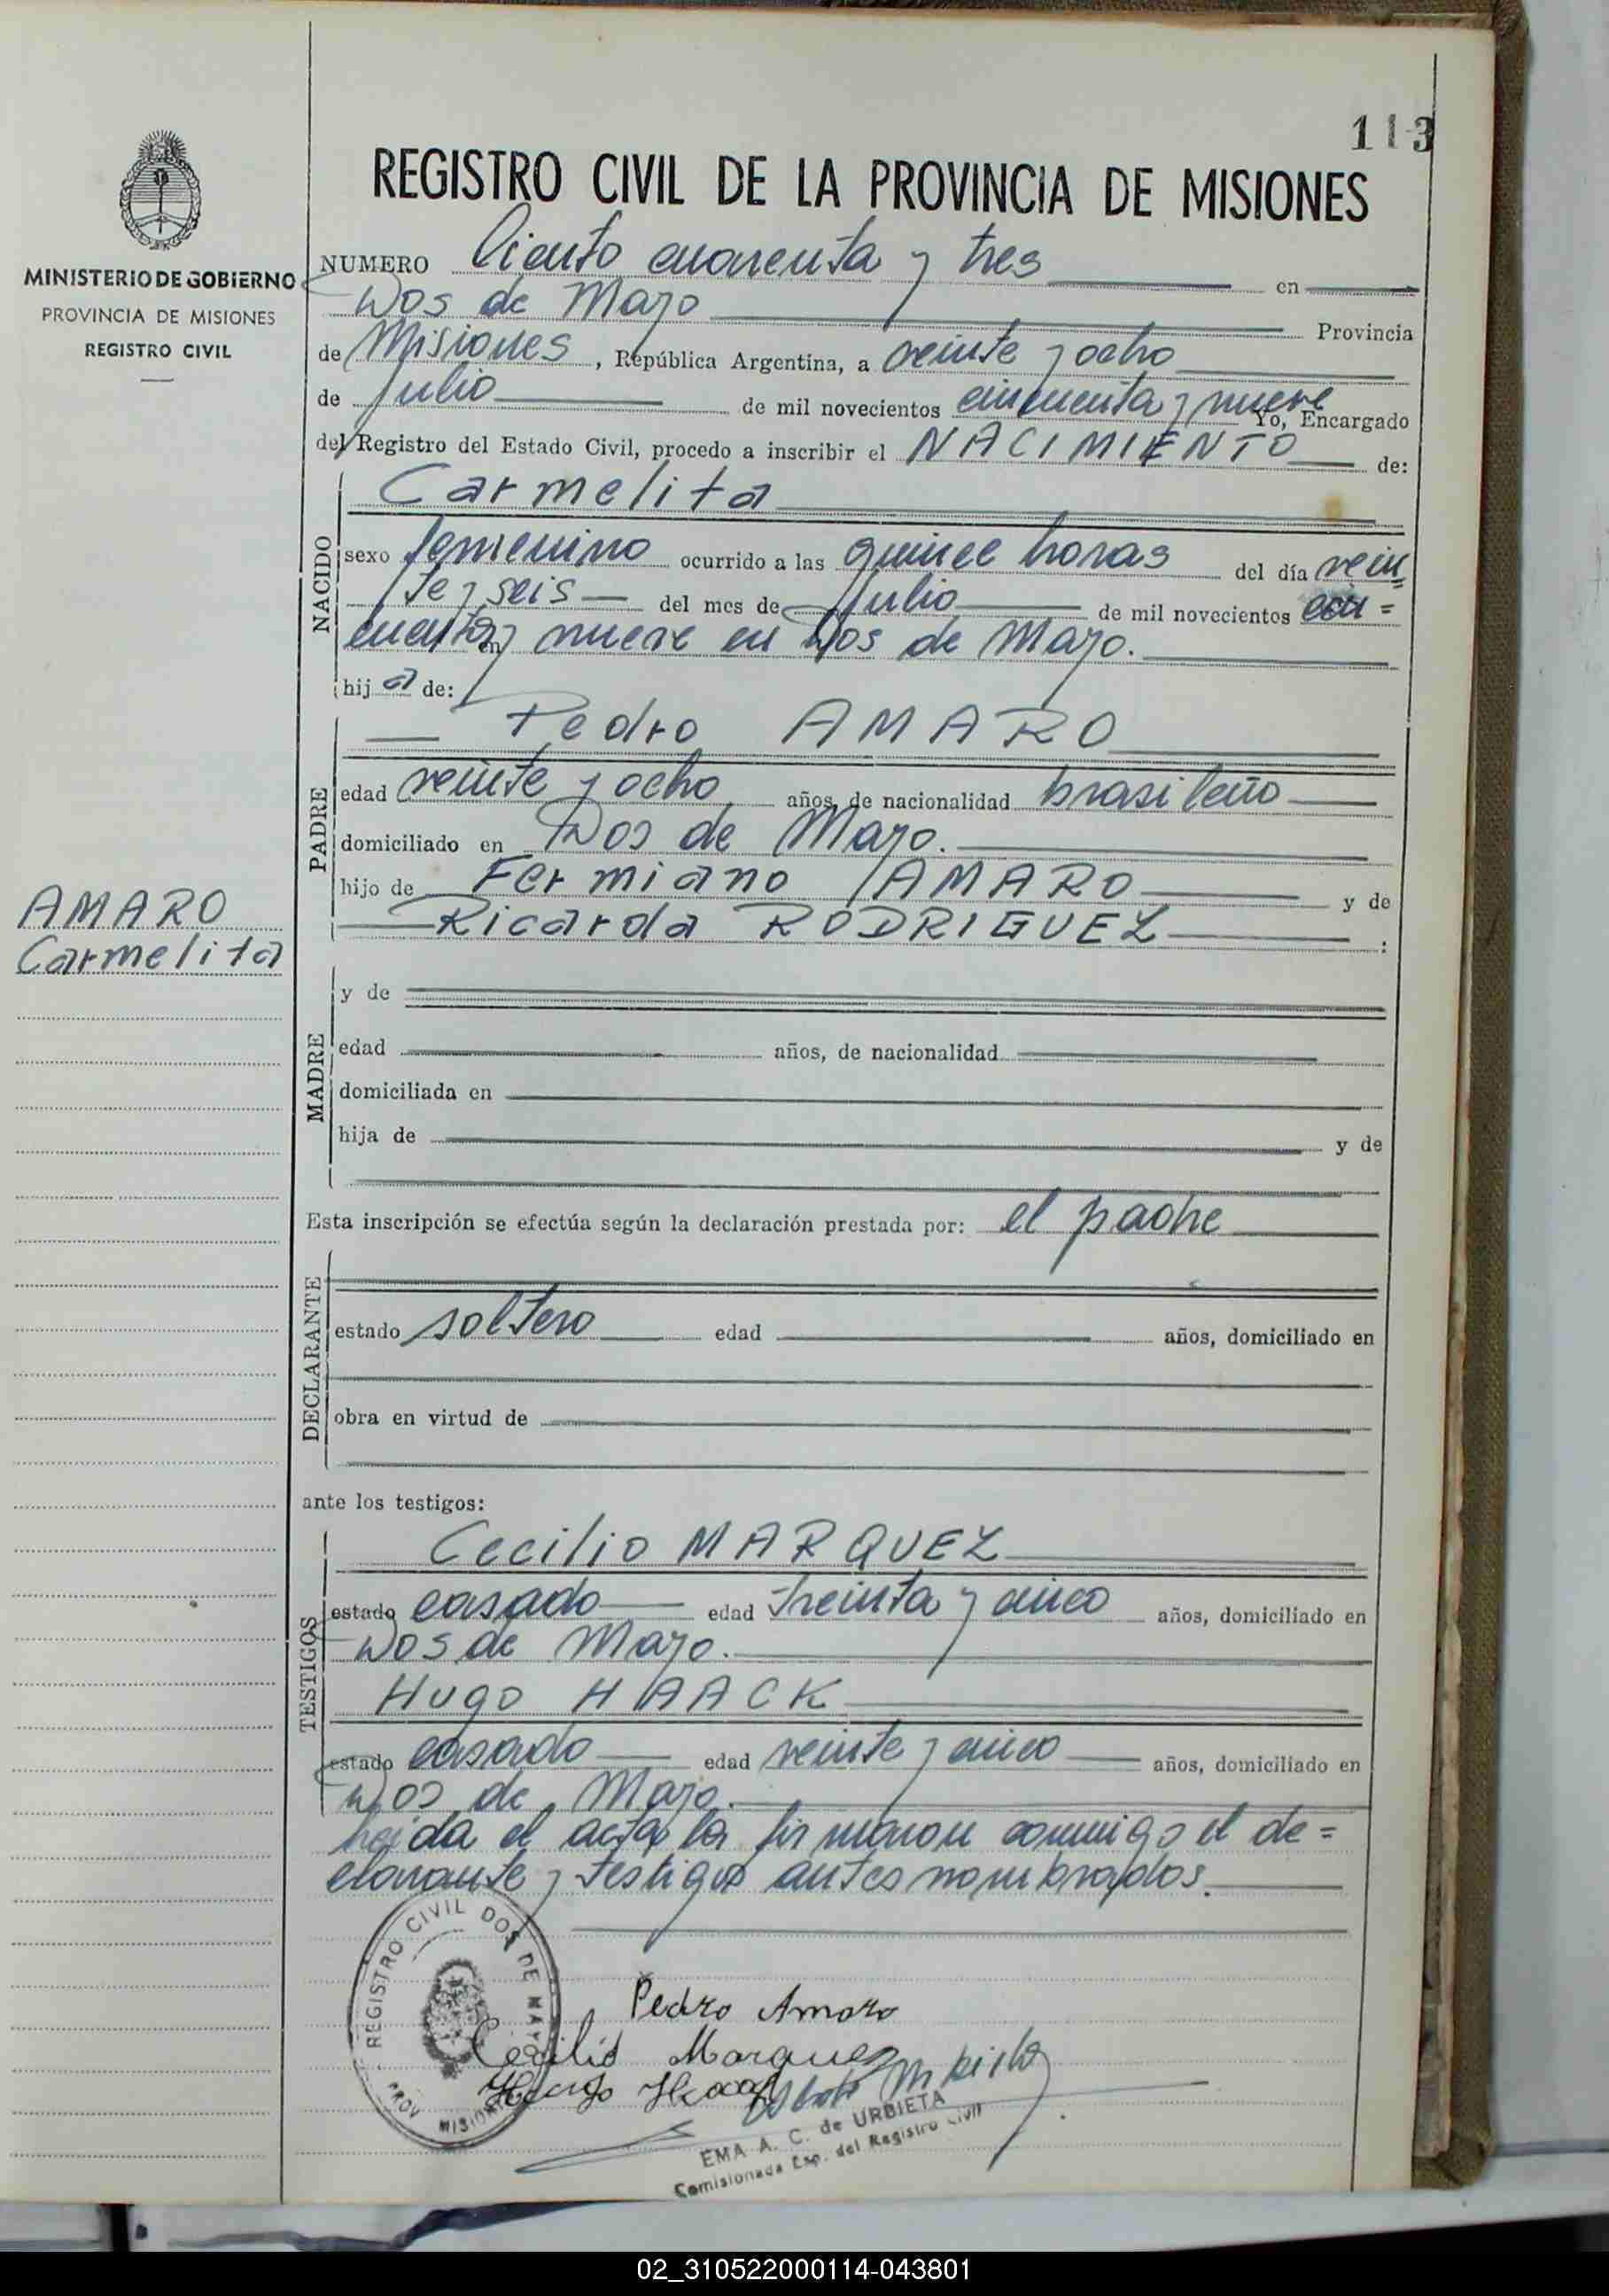 113
REGISTRO CIVIL DE LA PROVINCIA DE MISIONES
MINISTERIO DE GOBIERNO
PROVINCIA DE MISIONES
REGISTRO CIVIL
NUMERO Ciento cuarenta y tres en
Dos de Mayo Provincia
de Misiones, República Argentina, a veinte y ocho
de Julio de mil novecientos cincuenta y nueve Yo, Encargado
del Registro del Estado Civil, procedo a inscribir el NACIMIENTO de:
NACIDO
Carmelita
sexo femenino ocurrido a las quince horas del día vein
te y seis del mes de Julio de mil novecientos cin=
cuenta y nueve en Dos de Mayo.
hija de:
PADRE
Pedro AMARO
edad veinte y ocho años, de nacionalidad brasileño
domiciliado en Dos de Mayo.
hijo de Fermiano AMARO y de
Ricarda RODRIGUEZ :
AMARO
Carmelita
MADRE
y de
edad años, de nacionalidad
domiciliada en
hija de y de
Esta inscripción se efectúa según la declaración prestada por: el padre
DECLARANTE
estado soltero edad años, domiciliado en
obra en virtud de
ante los testigos:
TESTIGOS
Cecilio MARQUEZ
estado casado edad treinta y cinco años, domiciliado en
Dos de Mayo.
Hugo HAACK
estado casado edad veinte y cinco años, domiciliado en
Dos de Mayo.
Leida el acta la firmaron conmigo el de=
clarante y testigos antes nombrados.
REGISTRO CIVIL DOS DE MAYO
PROV MISIONES
Pedro Amaro
Cecilio Marquez
Hugo Haack
EMA A. C. de URBIETA
Comisionada Esp. del Registro Civil
02_310522000114-043801